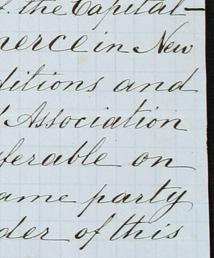 f. the Capital-
merce in New
ditions and
Association
ferable on
ame party
der of this